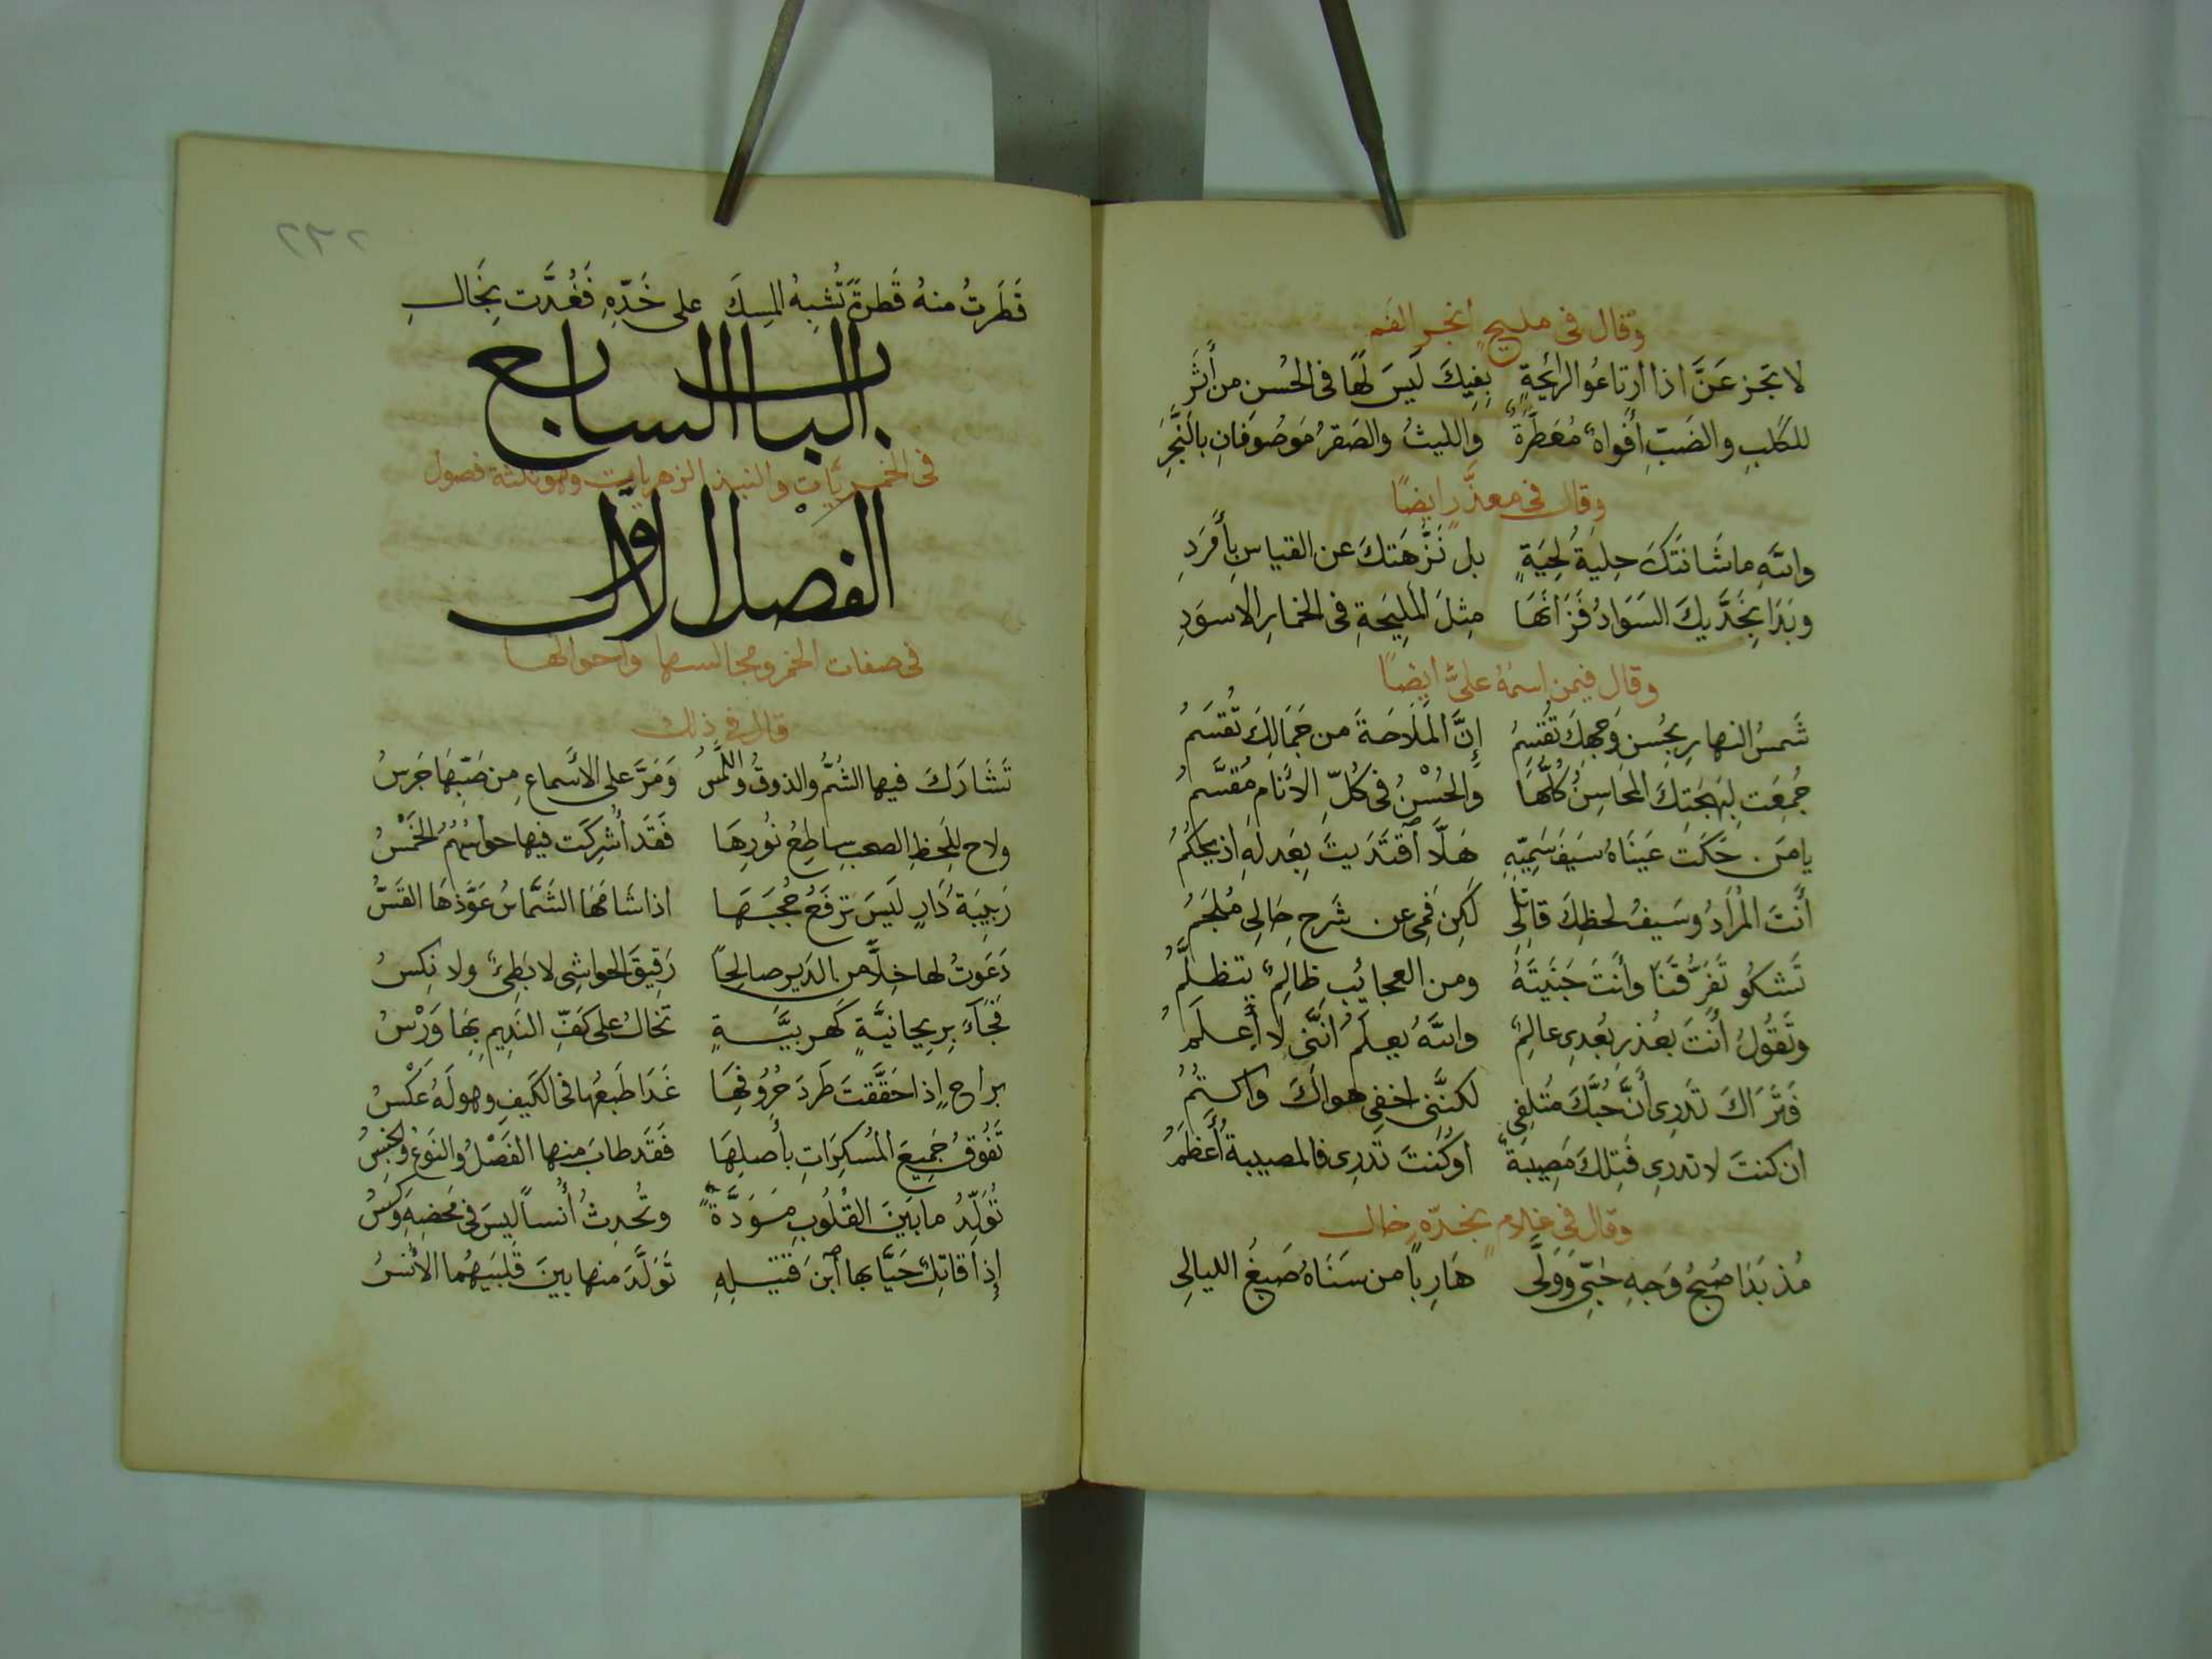 وقال في مليح ابخر الفم
لا تجزعنَّ اذا ارتاعوُا لرائحةٍ بفِيكَ لَيسَ لهَا في الحُسنِ من أَثَرِ
للكَلبِ والضَبّ أَفواهٌ مُعَطَّرَةٌ والليثُ والصَقرُ مَوصُوفَانِ بالبَخَرِ
وقال في معذّر ايضًا
والله ما شَانَتكَ حِليَةُ لِحيَةٍ بل نَزَّهَتكَ عن القياسِ بِأَمرَدِ
وبَدَا بِخَدَّيكَ السَوَادُ فَزَانَهَا مِثلَ المَلِيحَةِ في الخمارِ الاسوَدِ
وقال فيمن اسمهُ عليٌّ ايضًا
شَمسُ النهارِ بِحُسنِ وَجهِكَ تُقسِمُ إنَّ المَلَاحَةَ من جَمَالِكَ تُقسَمُ
جُمِعَت لِبَهجَتِكَ المَحَاسِنُ كُلُّهَا والحُسْنُ في كُلِّ الأنَامِ مُقَسَّمُ
يا مَن حَكَت عَينَاهُ سَيفَ سَمِيّهِ هَلَّا اقتَدَيتَ بِعَدلهِ اذ يَحكُمُ
أَنتَ المُرَادُ وسَيفُ لحظِكَ قاتِلي لَكِن فَمِي عن شَرحِ حَالِي مُلجَمُ
تَشكُو تَفَرُّقَنَا وأنتَ جَنَيتَهُ ومن العجايُبِ ظالِمٌ يتظلَّمُ
وتَقُولُ أَنتَ بعُذرِ بُعدِي عالِمٌ والله يعلَمُ انَّنِي لا أَعلَمُ
فَتَرَاكَ تَدرِي أَنَّ حُبَّكَ مُتلِفِي لكنَّنِي اخفِي هواكَ واكتُمُ
ان كنتَ لا تدرِي فَتِلكَ مُصِيبَةٌ اوكُنتَ تَدرِي فالمصيبةُ أَعظَمُ
وقال في غلامٍ بخدّهِ خال
مُذ بَدَا صُبحُ وَجهِ حِبّي وَوَلَّى هَارِباً من سَنَاهُ صَبغُ الليالِي
٢٦٢
قَطَرتُ منهُ قَطرةً تُشبِهُ المِسكَ على خَدّهِ فَغُدَّت بِخَالِ
الباب السابع
في الخمريَّات والنبذ الزهريات وهو ثلثة فصول
الفصل الاول
في صفات الخمر ومجالسها واحوالها
قال في ذلك
تَشَارَكَ فيها الشمُّ والذوقُ واللَّمسُ وَمَرَّ على الأَسماعِ مِن صَبّهَا جَرسُ
ولاح لِلَحظِ الصحبِ ساطِعُ نُورِهَا فَقَد أُشرِكَت فيها حواسُهُمُ الخَمْسُ
رَبِيبَةُ دَارٍ لَيسَ تَرفَعُ حُجبَهَا اذا شَامَهَا الشَمَّاسُ عَوَّذهَا القَسُّ
دَعَوتُ لها خِلَّا من الدَيرِ صالِحًا رَقِيقَ الحواشِي لا بَطِئٌ ولا نِكسُ
فَجَاءَ بِرِيحانيَّةٍ كَهربيَّةٍ تخالُ على كَفِّ النَدِيمِ بِهَا وَرْسُ
براحٍ إذا حَقَّقتَ طَردَ حُرُوفِهَا غَدَا طَبعُها في الكَيفِ وهو لَهُ عَكْسُ
تَفُوقُ جَمِيعَ المُسكِرَاتِ بأَصلِهَا فَقَد طابَ منها الفَصْلُ والنَوعُ والجِنسُ
تُوَلِّدُ ما بَينَ القُلُوبِ مَوَدَّةً وتُحدِثُ أُنساً ليسَ في مَحضِهِ وَكسُ
إذا قاتِلٌ حَيَّا بها ابنَ قتيلِهِ تَوَلَّدَ منها بينَ قَلبَيهُما الأُنسُ